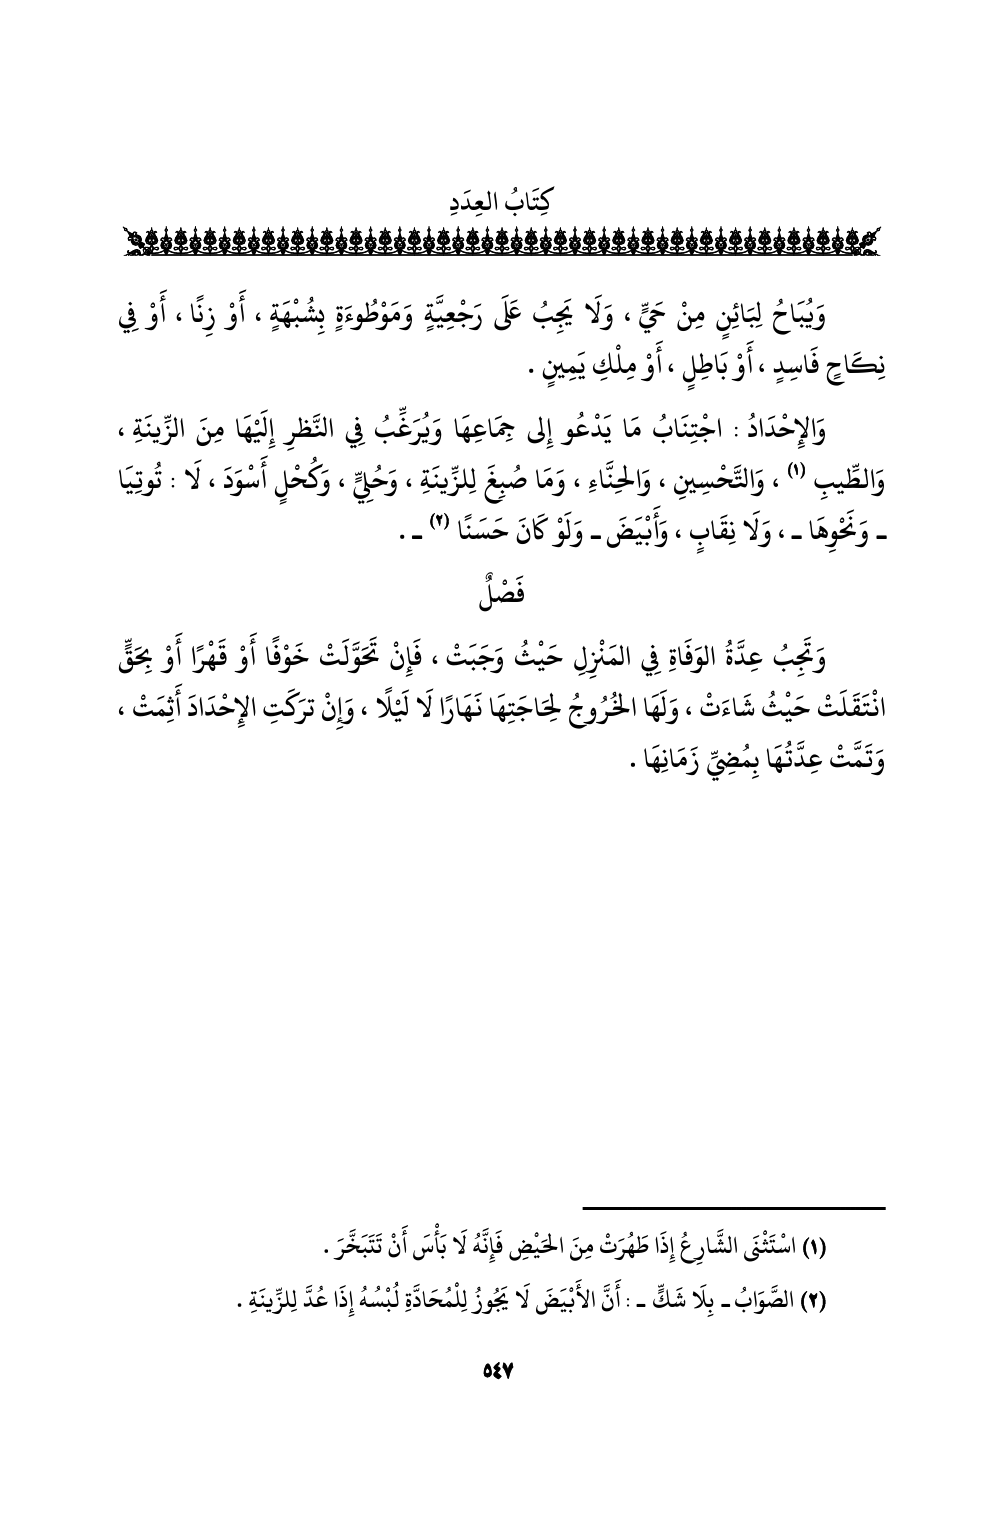 كِتَابُ العِدَدِ
وَيُبَاحُ لِبَائِنٍ مِنْ حَيٍّ ، وَلَا يَجِبُ عَلَى رَجْعِيَّةٍ وَمَوْطُوءَةٍ بِشُبْهَةٍ ، أَوْ زِنًا ، أَوْ فِي
نِكَاحٍ فَاسِدٍ ، أَوْ بَاطِلٍ ، أَوْ مِلْكِ يَمِينٍ .
وَالإِحْدَادُ : اجْتِنَابُ مَا يَدْعُو إِلى جِمَاعِهَا وَيُرَغِّبُ فِي النَّظرِ إِلَيْهَا مِنَ الزِّينَةِ ،
وَالطِّيبِ (١) ، وَالتَّحْسِينِ ، وَالحِنَّاءِ ، وَمَا صُبِغَ لِلزِّينَةِ ، وَحُلِيٍّ ، وَكُحْلٍ أَسْوَدَ ، لَا : تُوتِيَا
ـ وَنَحْوِهَا ـ ، وَلَا نِقَابٍ ، وَأَبْيَضَ ـ وَلَوْ كَانَ حَسَنًا (٢) ـ .
فَصْلٌ
وَتَجِبُ عِدَّةُ الوَفَاةِ فِي المَنْزِلِ حَيْثُ وَجَبَتْ ، فَإِنْ تَحَوَّلَتْ خَوْفًا أَوْ قَهْرًا أَوْ بِحَقٍّ
انْتَقَلَتْ حَيْثُ شَاءَتْ ، وَلَهَا الخُرُوجُ لِحَاجَتِهَا نَهَارًا لَا لَيْلًا ، وَإِنْ تركَتِ الإِحْدَادَ أَثِمَتْ ،
وَتَمَّتْ عِدَّتُهَا بِمُضِيِّ زَمَانِهَا .
(١) اسْتَثْنَى الشَّارِعُ إِذَا طَهُرَتْ مِنَ الحَيْضِ فَإِنَّهُ لَا بَأْسَ أَنْ تَتَبَخَّرَ .
(٢) الصَّوَابُ ـ بِلَا شَكٍّ ـ : أَنَّ الأَبْيَضَ لَا يَجُوزُ لِلْمُحَادَّةِ لُبْسُهُ إِذَا عُدَّ لِلزِّينَةِ .
٥٤٧